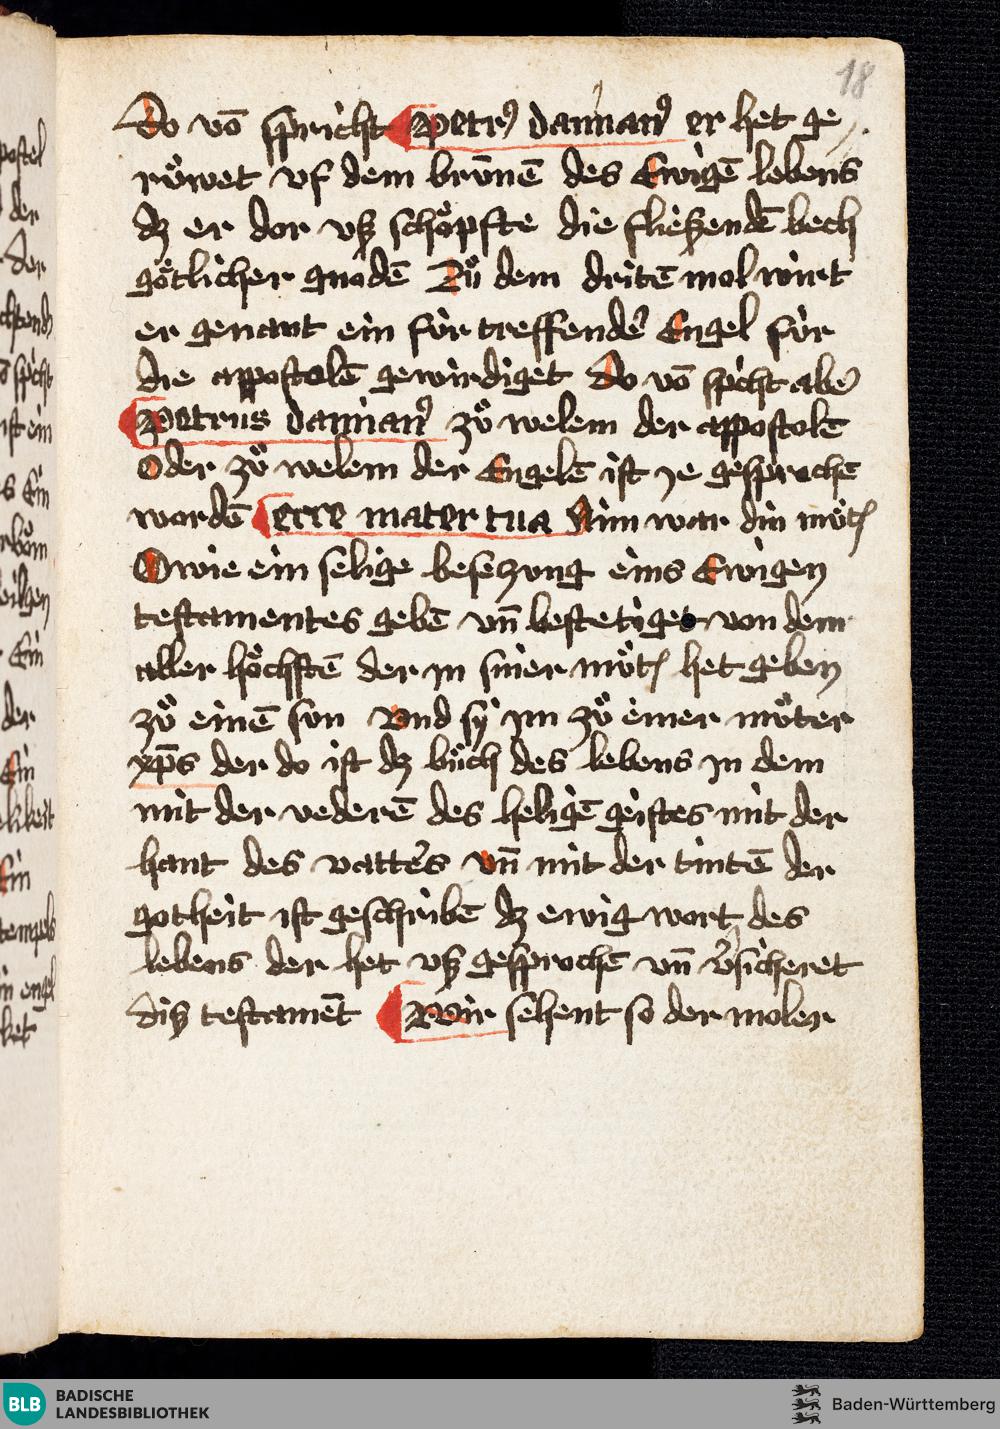 18
Do vō spricht Petrꝰ damianꝰ er het ge
růwet vf dem brūnē des Ewigē lebens
dz er dor vß schöpfte die fließendē bech
götlicher gnodē Zů dem dritē mol wirt
er genant ein fúr treffendeꝛ Engel fúr
die appostolē gewirdiget Do vō spicht abeꝛ
Petrus damianꝰ zů welem der appostolē
Oder zů welem der Engelē ist ye gesprochē
wordē ecce mater tua Nim war din můtꝭ
O wie ein selige besetzung eins Ewigen
testamentes gebē vn̄ bestetiget von dem
aller höchstē der jn siner můtꝭ het geben
zů einē sun Vnd sy jm zů einer můter
xp̄s der do ist dz bůch des lebens jn dem
mit der vederē des heligē geistes mit der
hant des vatters vn̄ mit der tintē der
gotheit ist geschribē dz ewig wort des
lebens der het vß gesprochē vn̄ v̓sicheret
diß testamēt Wir sehent so der moler
BLB
BADISCHE
LANDESBIBLIOTHEK
Baden-Württemberg